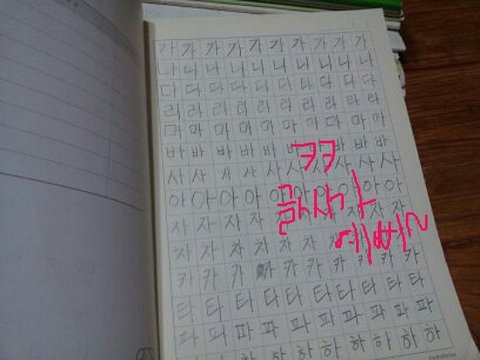 가 가 가 가 가 가 가 가 가 가
나 나 나 나 나 나 나 나 나 나
다 다 다 다 다 다 다 다 다 다
라 라 라 라 라 라 라 라 라 라
마 마 마 마 마 마 마 마 마 마
바 바 바 바 바 바 바 바 바 바
사 사 사 사 사 사 사 사 사 사
아 아 아 아 아 아 아 아 아 아
자 자 자 자 자 자 자 자 자
차 차 차 차 차 차 차 차 차
카 카 카 카 카 카 카 카 카
타 타 타 타 타 타 타 타 타
파 파 파 파 파 파 파 파 파
하 하 하 하 하 하 하 하 하
ㅋㅋ
글사가
예뻐~